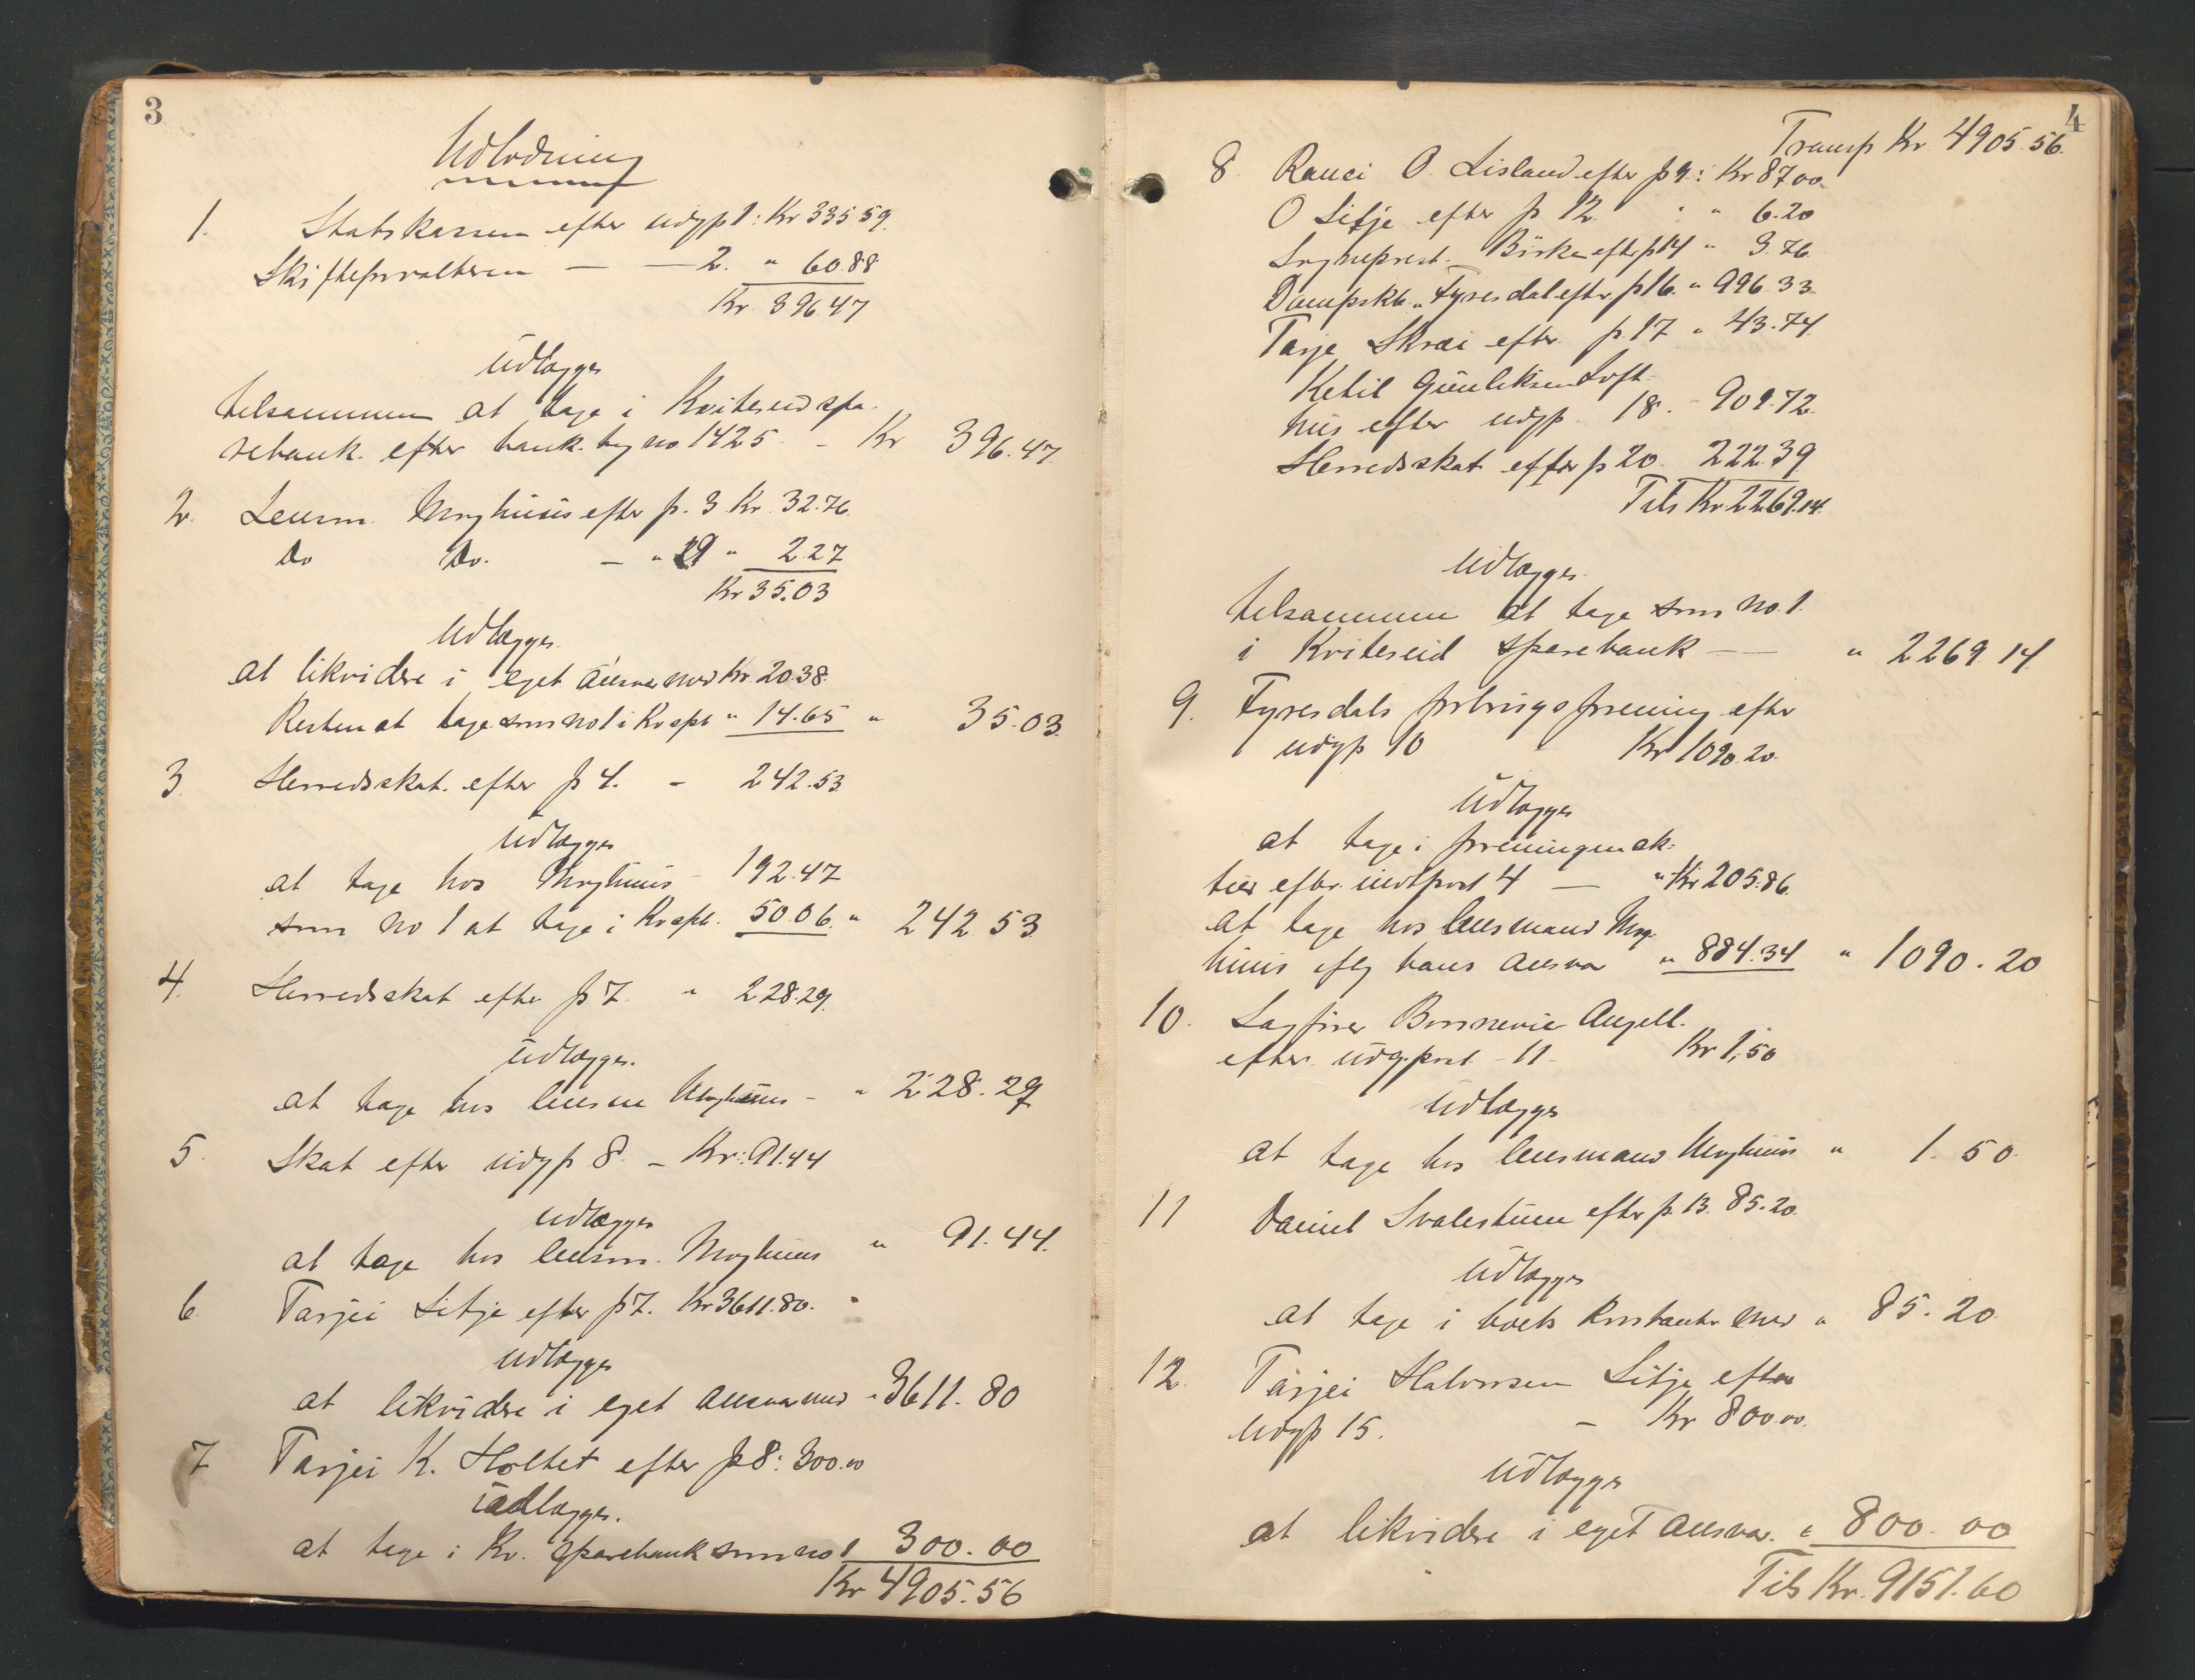 3
Udlodning
1. Statskassen efter udgp 1: Kr 335.59.
Skifteforvalteren — — 2. " 60.88
Kr 396.47
Udlægges
tilsammen at tage i Kviteseid spa-
rebank. efter bank. bog no 1425 - Kr 396.47.
2. Lensm. Moghuus efter p. 3 Kr. 32.76.
Do Do. — " 19 " 2.27
Kr 35.03
Udlægges.
at likvidere i eget ansvar med Kr. 20.38.
Resten at tage som no 1 i Kv spb " 14.65 " 35.03.
3. Herredsskat. efter p 4. - 242.53
Udlægges
at tage hos Moghuus - 192.47
som no 1 at tage i Kv spb. 50.06. " 242 53
4. Herredsskat efter p 7. " 228.29.
Udlægges.
at tage hos lensm Moghuus - " 228.29
5. Skat efter udgp 8. - Kr: 91.44
Udlægges
at tage hos lensm. Moghuus " 91.44.
6. Tarjei Sitje efter p 7. Kr 3611.80. "
Udlægges
at likvidere i eget ansvar med " 3611.80
7. Tarjei K. Holtet efter p 8: 300.00
Udlægges.
at tage i Kv. sparebank som no 1 300.00
Kr 4905.56
4
Transp Kr 4905.56.
8. O. Lisland efter p 9: Kr 87.00
O Sitje efter p 12. : " 6.20
Sogneprest. Birke efter p 14 " 3.76.
Dampskb. "Fyresdal efter p 16. " 996.33
Tarje Skræi efter p. 17 " 43.74.
Ketil Gunleiksen Loft-
hus efter udgp. 18. - 909.72.
Herredsskat efter p 20. 222.39
Tils Kr 2269.14.
Udlægges.
tilsammen at tage som no. 1.
i Kviteseid sparebank — — " 2269.14
9. Fyresdals forbrugsforening efter
udgp 10 - Kr 1090.20.
Udlægges
at tage i foreningen ak-
tier efter indtpost 4 — " Kr 205.86.
at tage hos lensmand Mog-
huus iflg hans ansvar " 884.34 " 1090.20
10. Sagfører Bonnevie Angell.
efter udg.post - 11 - Kr 1,50
Udlægges
at tage hos lensmand Moghuus " 1.50.
11 Daniel Svalestuen efter p. 13. 85.20.
Udlægges
at tage i boets kontanter med " 85.20
12. Tarjei Halvorsen Sitje efter
udgp 15. - Kr 800.00.
Udlægges
at likvidere i eget ansvar. " 800.00
Tils Kr. 9151.60